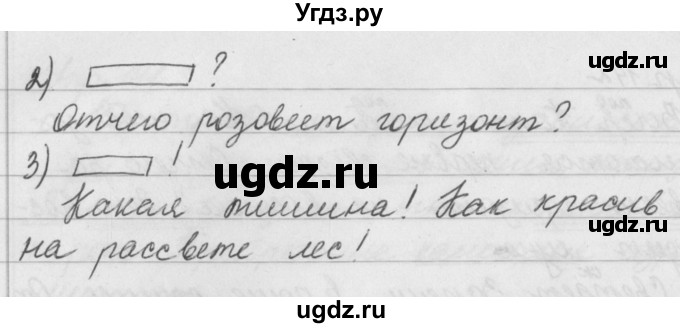 Угдз.ру
ugdz.ru ugdz.ru
2) ?
Отчего розовеет горизонт?
3) !
ugdz.ru
Какая тишина! Как красив
ugdz.ru
на рассвете лес!
ugdz.ru
ugdz.ru